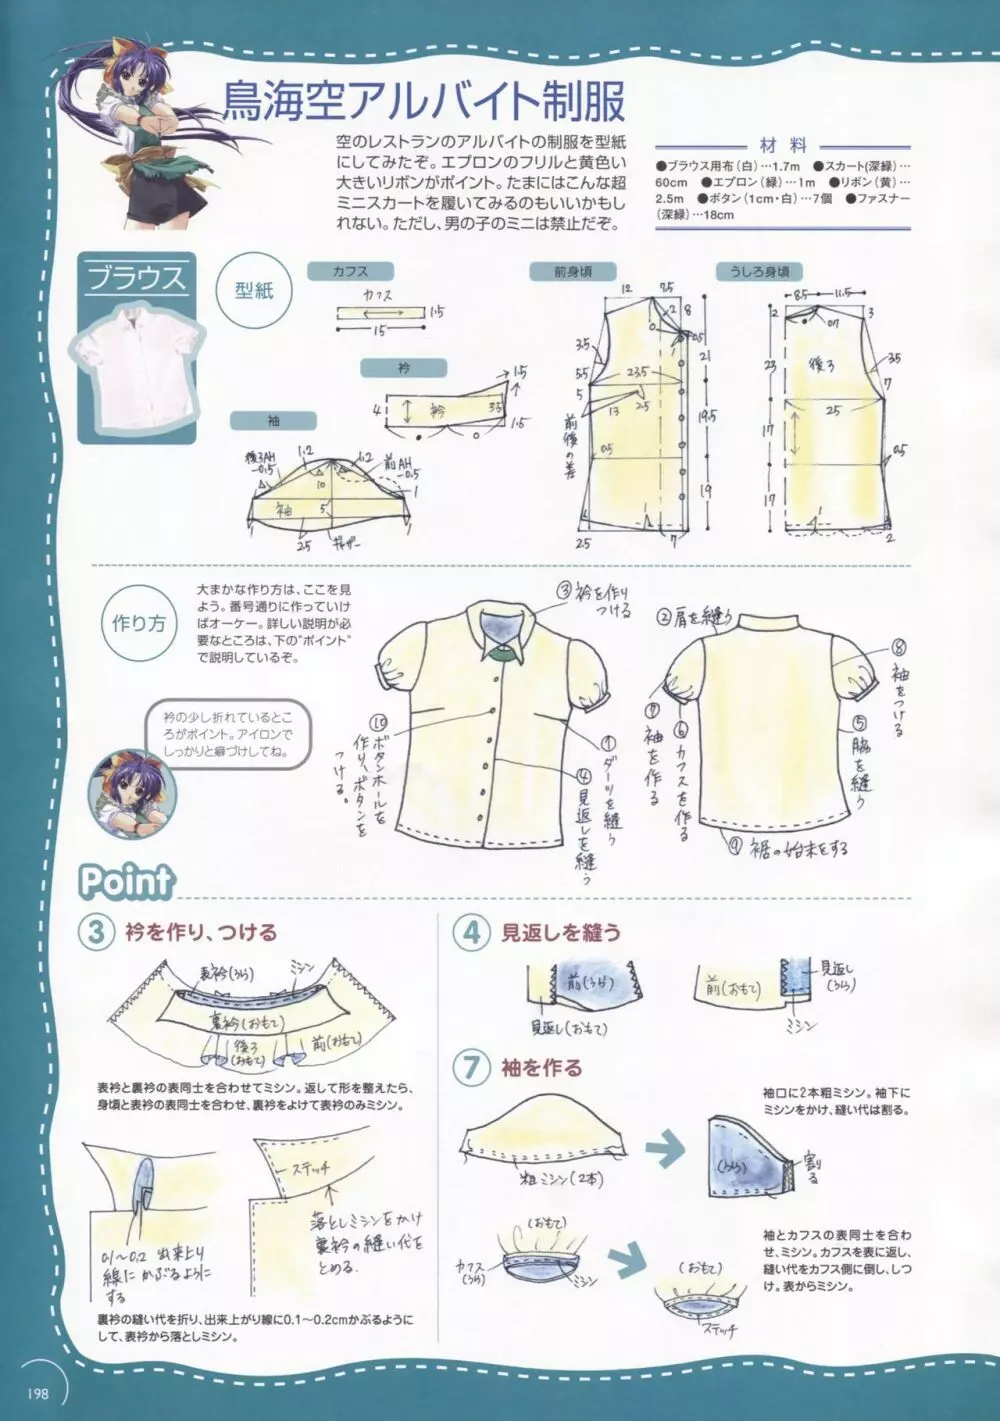 鳥海空アルバイト制服
空のレストランのアルバイトの制服を型紙
にしてみたぞ。エプロンのフリルと黄色い
大きいリボンがポイント。たまにはこんな超
ミニスカートを履いてみるのもいいかもし
れない。ただし、男の子のミニは禁止だぞ。
材料
●ブラウス用布(白)…1.7m ●スカート(深緑)…
60cm ●エプロン(緑)…1m ●リボン(黄)…
2.5m ●ボタン(1cm・白)…7個 ●ファスナー
(深緑)…18cm
ブラウス
型紙
カフス
カフス
1.5
15
衿
1.5
4
衿
3.5
1.5
袖
後ろAH
-0.5
1.2
1.2
前AH
-0.5
10
1
袖
5
1
1
2.5
ギャザー
前身頃
12
7.5
2
8
0.5
1
3.5
21
5.5
23.5
5
13
2.5
19.5
前後の差
0.5
19
1
2.5
7
うしろ身頃
8.5
11.5
2
0.7
3
後ろ
23
3.5
7
25
17
0.5
17
1
2
作り方
大まかな作り方は、ここを見
よう。番号通りに作っていけ
ばオーケー。詳しい説明が必
要なところは、下の"ポイント"
で説明しているぞ。
衿の少し折れているとこ
ろがポイント。アイロンで
しっかりと癖づけしてね。
③衿を作り
つける
②肩を縫う
⑧袖をつける
⑩ボタンホールを
作り、ボタンを
つける。
①ダーツを縫う
④見返しを縫う
⑦袖を作る
⑥カフスを作る
⑤脇を縫う
⑨裾の始末をする
Point
③ 衿を作り、つける
表衿(うら)
ミシン
裏衿(おもて)
後ろ
(おもて)
前(おもて)
表衿と裏衿の表同士を合わせてミシン。返して形を整えたら、
身頃と表衿の表同士を合わせ、裏衿をよけて表衿のみミシン。
0.1〜0.2 出来上り
線に かぶるように
する
ステッチ
落としミシンをかけ
裏衿の縫い代を
とめる.
裏衿の縫い代を折り、出来上がり線に0.1〜0.2cmかぶるように
して、表衿から落としミシン。
④ 見返しを縫う
前(うら)
見返し(おもて)
前(おもて)
見返し
(うら)
ミシン
⑦ 袖を作る
袖口に2本粗ミシン。袖下に
ミシンをかけ、縫い代は割る。
粗ミシン(2本)
(うら)
割る
袖とカフスの表同士を合わ
せ、ミシン。カフスを表に返し、
縫い代をカフス側に倒し、しつ
け。表からミシン。
(おもて)
カフス
(うら)
ミシン
(おもて)
ステッチ
198